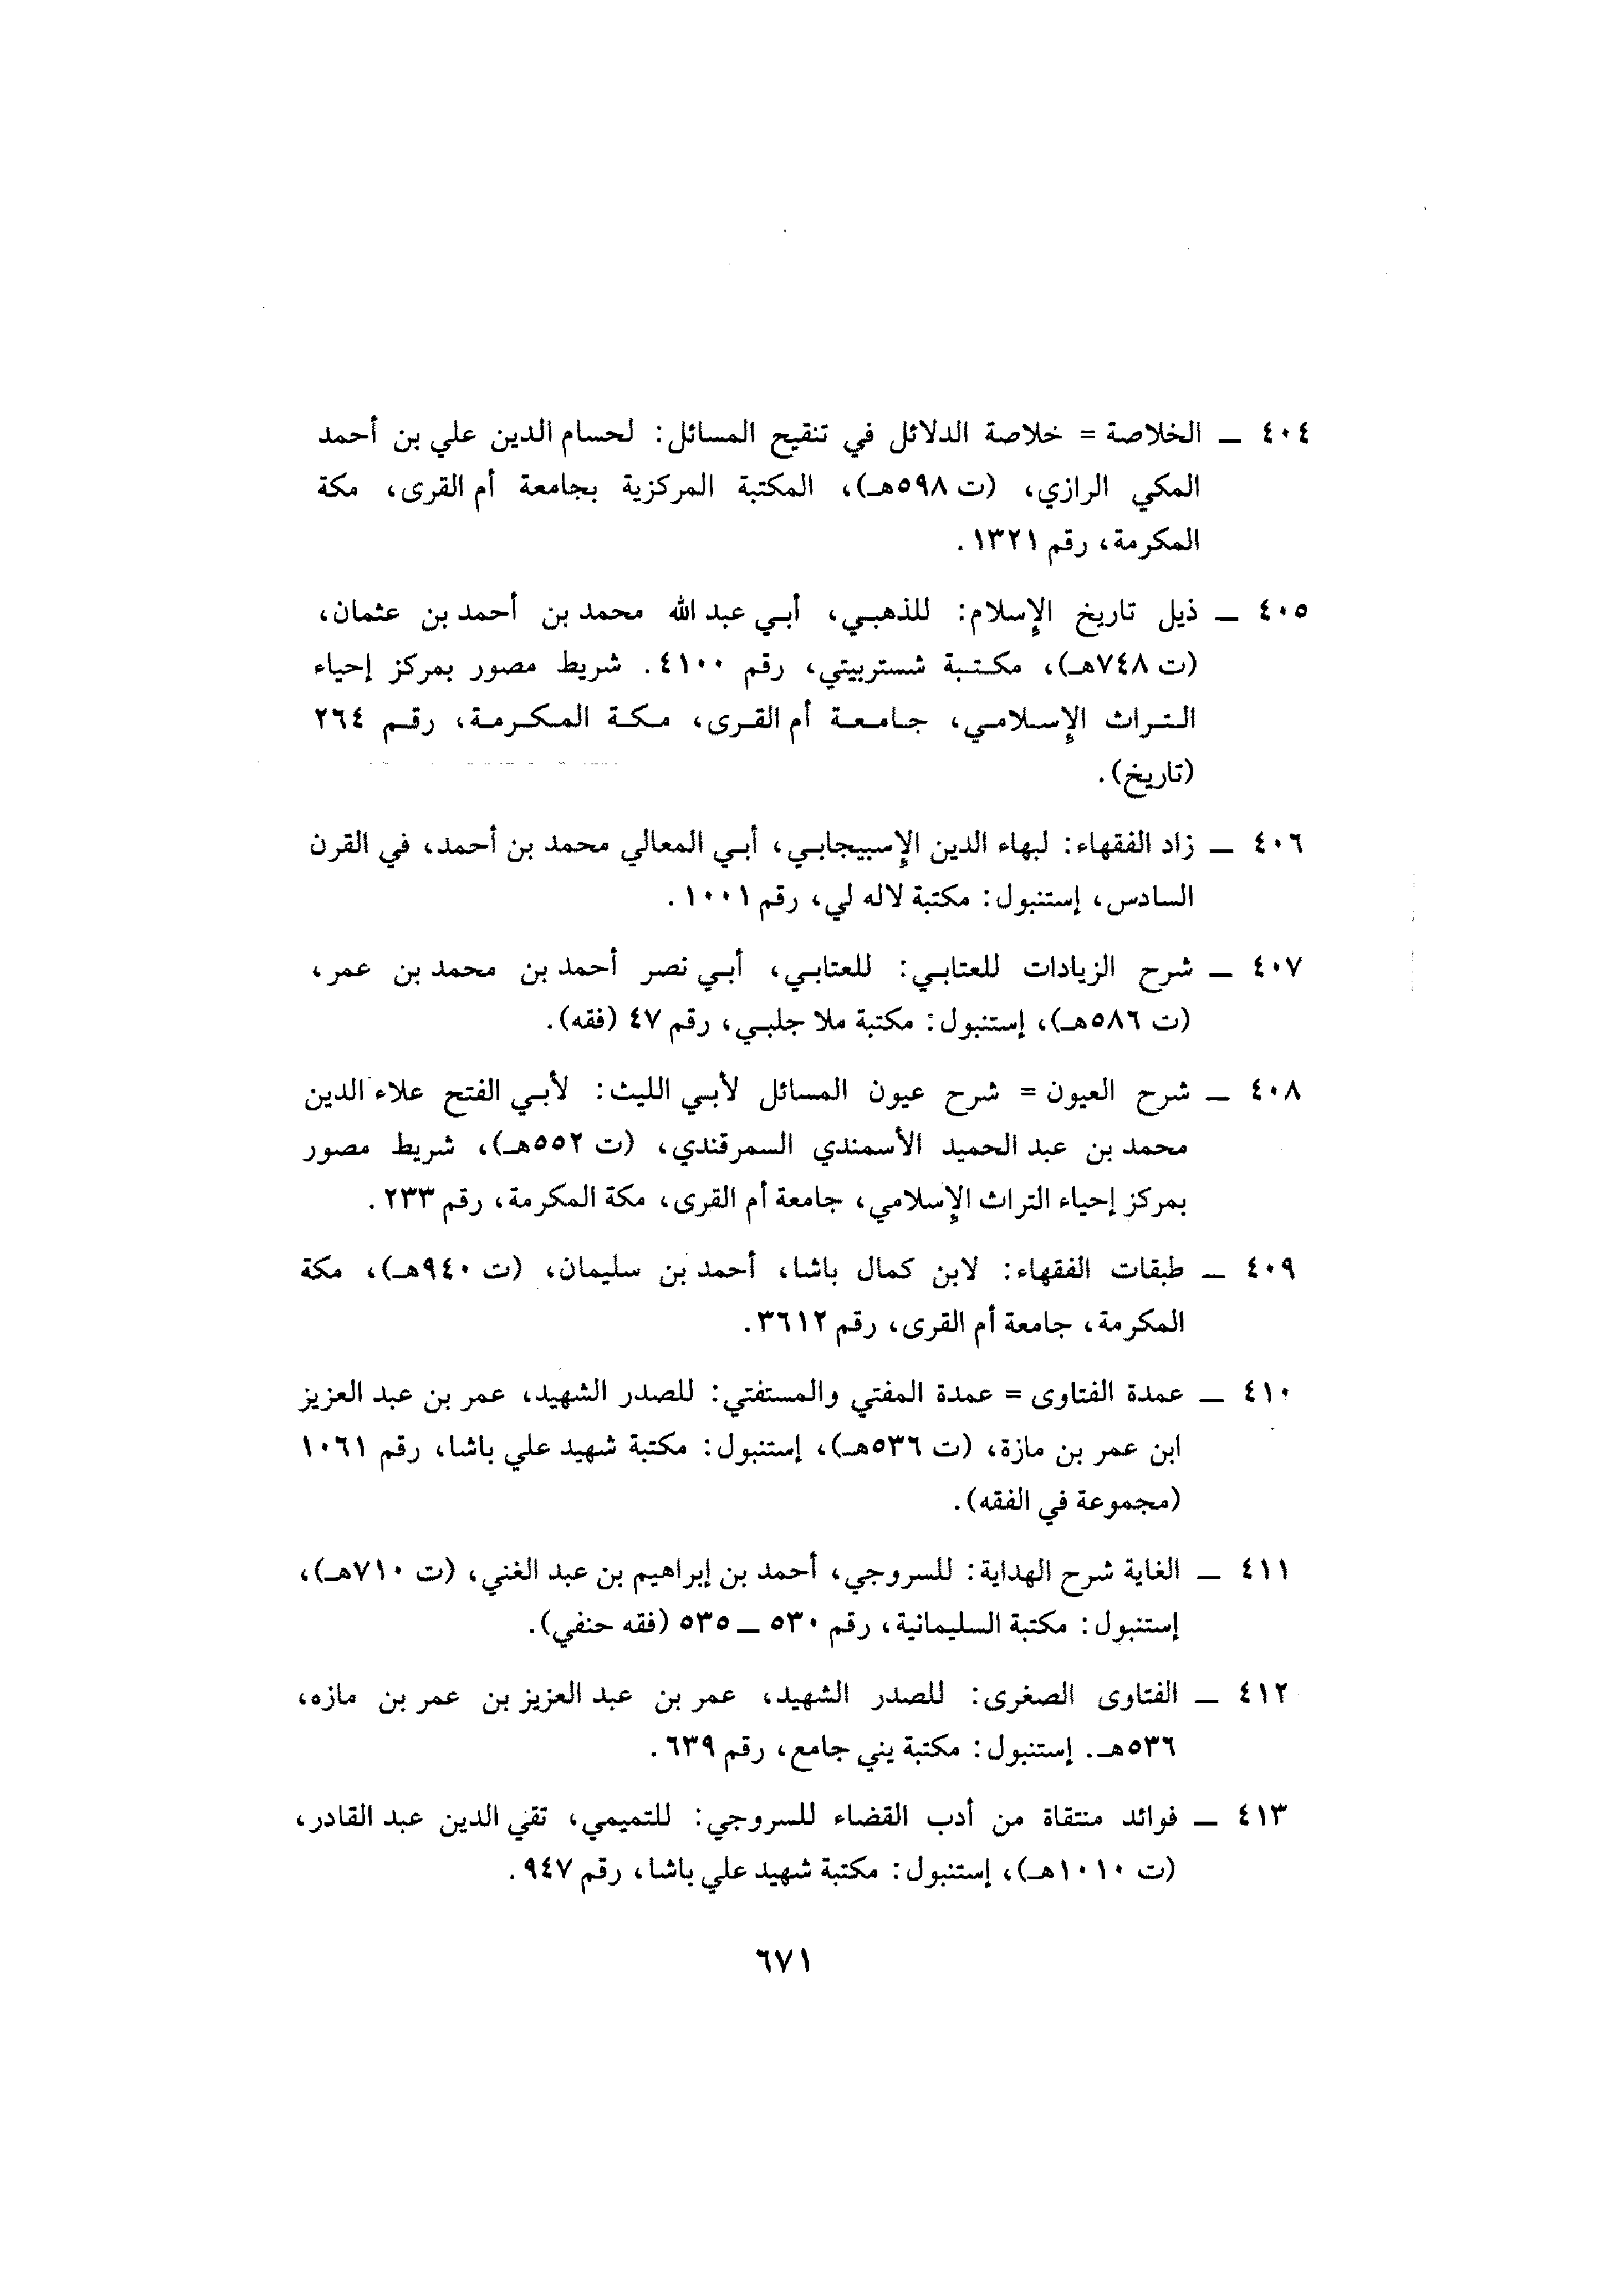 ٤٠٤ – الخلاصة = خلاصة الدلائل في تنقيح المسائل: لحسام الدين علي بن أحمد
المكي الرازي، (ت ٥٩٨هـ)، المكتبة المركزية بجامعة أم القرى، مكة
المكرمة، رقم ١٣٢١.
٤٠٥ – ذيل تاريخ الإسلام: للذهبي، أبي عبد الله محمد بن أحمد بن عثمان،
(ت ٧٤٨هـ)، مكتبة شستربيتي، رقم ٤١٠٠. شريط مصور بمركز إحياء
التراث الإسلامي، جامعة أم القرى، مكة المكرمة، رقم ٢٦٤
(تاريخ).
٤٠٦ – زاد الفقهاء: لبهاء الدين الإسبيجابي، أبي المعالي محمد بن أحمد، في القرن
السادس، إستنبول: مكتبة لاله لي، رقم ١٠٠١.
٤٠٧ – شرح الزيادات للعتابي: للعتابي، أبي نصر أحمد بن محمد بن عمر،
(ت ٥٨٦هـ)، إستنبول: مكتبة ملا جلبي، رقم ٤٧ (فقه).
٤٠٨ – شرح العيون = شرح عيون المسائل لأبي الليث: لأبي الفتح علاء الدين
محمد بن عبد الحميد الأسمندي السمرقندي، (ت ٥٥٢هـ)، شريط مصور
بمركز إحياء التراث الإسلامي، جامعة أم القرى، مكة المكرمة، رقم ٢٣٣.
٤٠٩ – طبقات الفقهاء: لابن كمال باشا، أحمد بن سليمان، (ت ٩٤٠هـ)، مكة
المكرمة، جامعة أم القرى، رقم ٣٦١٢.
٤١٠ – عمدة الفتاوى = عمدة المفتي والمستفتي: للصدر الشهيد، عمر بن عبد العزيز
ابن عمر بن مازة، (ت ٥٣٦هـ)، إستنبول: مكتبة شهيد علي باشا، رقم ١٠٦١
(مجموعة في الفقه).
٤١١ – الغاية شرح الهداية: للسروجي، أحمد بن إبراهيم بن عبد الغني، (ت ٧١٠هـ)،
إستنبول: مكتبة السليمانية، رقم ٥٣٠ – ٥٣٥ (فقه حنفي).
٤١٢ – الفتاوى الصغرى: للصدر الشهيد، عمر بن عبد العزيز بن عمر بن مازه،
٥٣٦هـ. إستنبول: مكتبة يني جامع، رقم ٦٣٩.
٤١٣ – فوائد منتقاة من أدب القضاء للسروجي: للتميمي، تقي الدين عبد القادر،
(ت ١٠١٠هـ)، إستنبول: مكتبة شهيد علي باشا، رقم ٩٤٧.
٦٧١